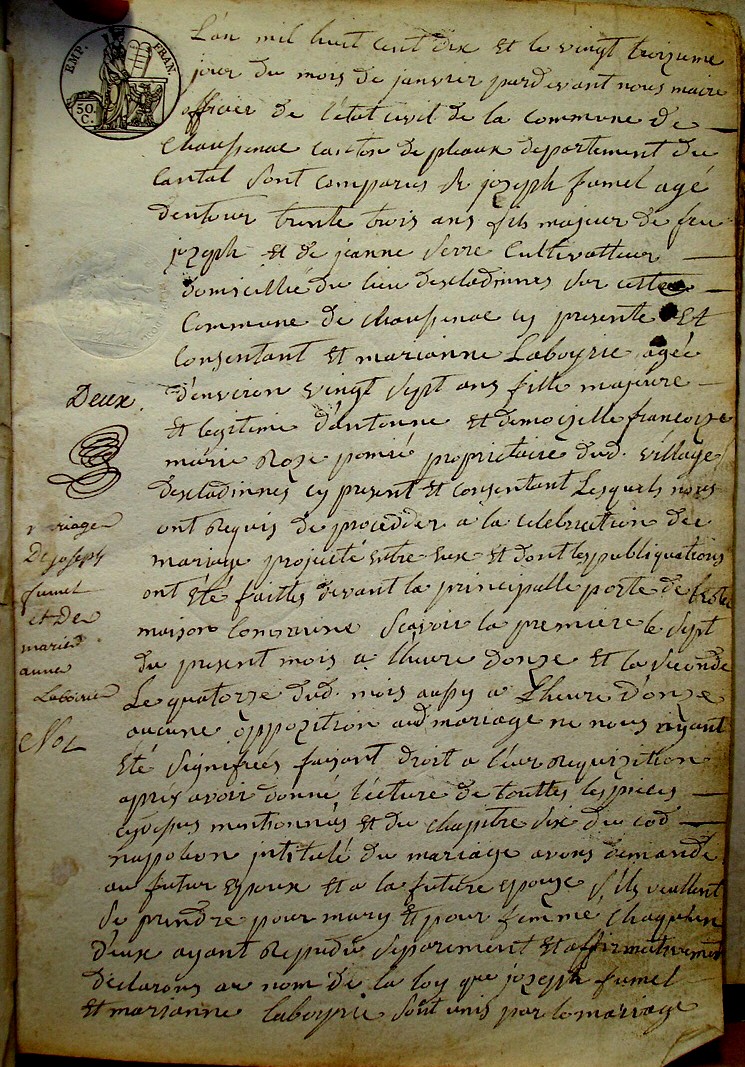 EMP. FRAN.
50. C.
L'an mil huit cent dix et le vingt troizieme
jour du mois de janvier pardevant nous maire
officier de l'état civil de la commune de
chaussenac canton de pleaux departement du
Cantal sont comparus Sr jozeph fumel agé
dentour trente trois ans fils majeur de feu
jozeph et de jeanne Serre Cultivatteur
domicillié du lieu descladinnes sur cette
Commune de chaussenac cy presente et
Consentant et marianne Laboyrie agée
d'environ vingt sept ans fille majeure
et legitime d'antoine et demoizelle francoize
marie Roze pomié propriétaire dud. village
descladinnes cy present et consentant Lesquels nous
ont Requis de procedder a la celebration du
mariage projetté entre eux et dont les publiquations
ont été faittes devant la principalle porte de
maison Commune Scavoir la premiere le sept
du present mois a lheure donze et la seconde
Le quatorze dud. mois aussy a Lheure d'onze
aucune opposition aud mariage ne nous ayant
été Signifiées faisant droit a leur Requizition
apres avoir donné lecture de touttes les pieces
cydessus mentionnés et du chappitre six du cod
napoleon intitulé du mariage avons demandé
au futur epoux et a la future epouze s'ils veullent
Se prendre pour mary et pour femme, chaqu'un
d'eux ayant Repondu Separement et affirmativement
declarons au nom de la loy que jozeph fumel
et marianne Laboyrie Sont unis par le mariage
Deux.
mariage
De joseph
fumel
et De
marie
anne
Laboirie